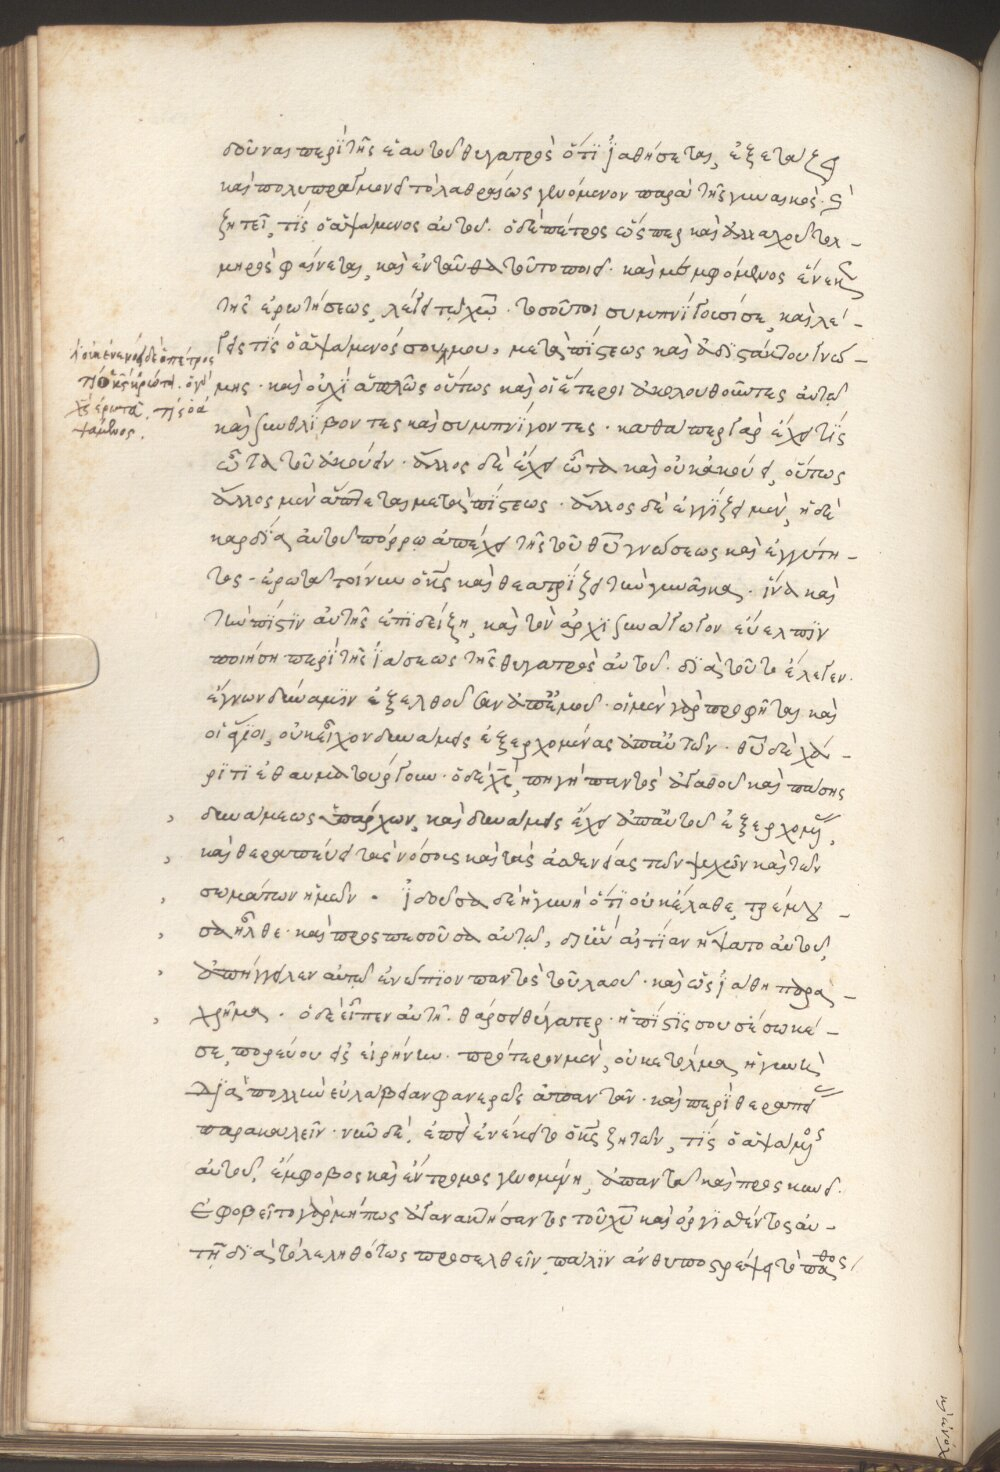 δοῦναι περὶ τῆς ἑαυτοῦ θυγατρὸς ὅτι ἰαθήσεται, ἐξετάζει
καὶ πολυπραγμονεῖ τὸ λαθραίως γενόμενον παρὰ τῆς γυναικός· καὶ
ζητεῖ, τίς ὁ ἁψάμενος αὐτοῦ. ὁ δὲ πέτρος ὥσπερ καὶ ἀλλαχοῦ τολ-
μηρὸς φαίνεται, καὶ ἐνταῦθα τοῦτο ποιεῖ· καὶ μεμφόμενος ἕνεκεν
τῆς ἐρωτήσεως, λέγει τῷ χῷ· τοσοῦτοι συμπνίγουσί σε, καὶ λέ-
γεις τίς ὁ ἁψάμενός μου, μετὰ πίστεως καὶ ἀδιστάκτου γνώ-
μης· καὶ οὐχὶ ἁπλῶς οὕτως καὶ οἱ ἕτεροι ἀκολουθοῦντες αὐτῷ
καὶ συνθλίβοντες καὶ συμπνίγοντες· καθάπερ γὰρ ἔχει τίς
ὦτα τοῦ ἀκούειν· ἄλλος δὲ ἔχει ὦτα καὶ οὐκ ἀκούει, οὕτως
ἄλλος μὲν ἅπτεται μετὰ πίστεως· ἄλλος δὲ ἐγγίζει μὲν, ἡ δὲ
καρδία αὐτοῦ πόρρω ἀπέχει τῆς τοῦ θυ γνώσεως καὶ ἐγγύτη-
τος· ἐρωτᾶ τοίνυν ὁ κς καὶ θεατρίζει τὴν γυναῖκα· ἵνα καὶ
τὴν πίστιν αὐτῆς ἐπιδείξη, καὶ τὸν ἀρχισυνάγωγον εὔελπιν
ποιήση περὶ τῆς ἰάσεως τῆς θυγατρὸς αὐτοῦ. διὰ τοῦτο ἔλεγεν·
ἔγνων δύναμιν ἐξελθοῦσαν ἀπ᾽ ἐμοῦ· οἱ μὲν γὰρ προφῆται καὶ
οἱ ἅγιοι, οὐκ εἶχον δυνάμεις ἐξερχομένας ἀπ᾽ αὐτῶν· θυ δὲ χά-
ριτι ἐθαυματούργουν· ὁ δὲ χς, πηγὴ παντὸς ἀγαθοῦ καὶ πάσης
δυνάμεως ὑπάρχων, καὶ δυνάμεις ἔχει ἀπ᾽ αὐτοῦ ἐξερχομένας,
καὶ θεραπεύει τὰς νόσους καὶ τὰς ἀσθενείας τῶν ψυχῶν καὶ τῶν
σωμάτων ἡμῶν. ἰδοῦσα δὲ ἡ γυνὴ ὅτι οὐκ ἔλαθε, τρέμου-
σα ἦλθε· καὶ προσπεσοῦσα αὐτῷ, δι᾽ ἣν αἰτίαν ἥψατο αὐτοῦ,
ἀπήγγειλεν αὐτῷ ἐνώπιον παντὸς τοῦ λαοῦ· καὶ ὡς ἰάθη παρα-
χρῆμα. ὁ δὲ εἶπεν αὐτῆ· θάρσει θύγατερ· ἡ πίστις σου σέσωκέ-
σε, πορεύου εἰς εἰρήνην· πρότερον μὲν, οὐκ ἐτόλμα ἡ γυνὴ
διὰ πολλὴν εὐλάβειαν φανερῶς ἀπαντᾶν· καὶ περὶ θεραπείας
παρακαλεῖν· νῦν δὲ, ἐπεὶ ἐνέκειτο ὁ κς ζητῶν, τίς ὁ ἁψάμενος
αὐτοῦ, ἔμφοβος καὶ ἔντρομος γενομένη, ἀπαντᾶ καὶ προσκυνεῖ.
Ἐφοβεῖτο γὰρ μήπως ἀγανακτήσαντος τοῦ χυ καὶ ὀργισθέντος αὐ-
τῆ διὰ τὸ λεληθότως προσελθεῖν, πάλιν ἀνθυποστρέψη τὸ πάθος
ὁ πέτρος
ἐρωτᾶ, τίς ὁ ἁ
ψάμενος.